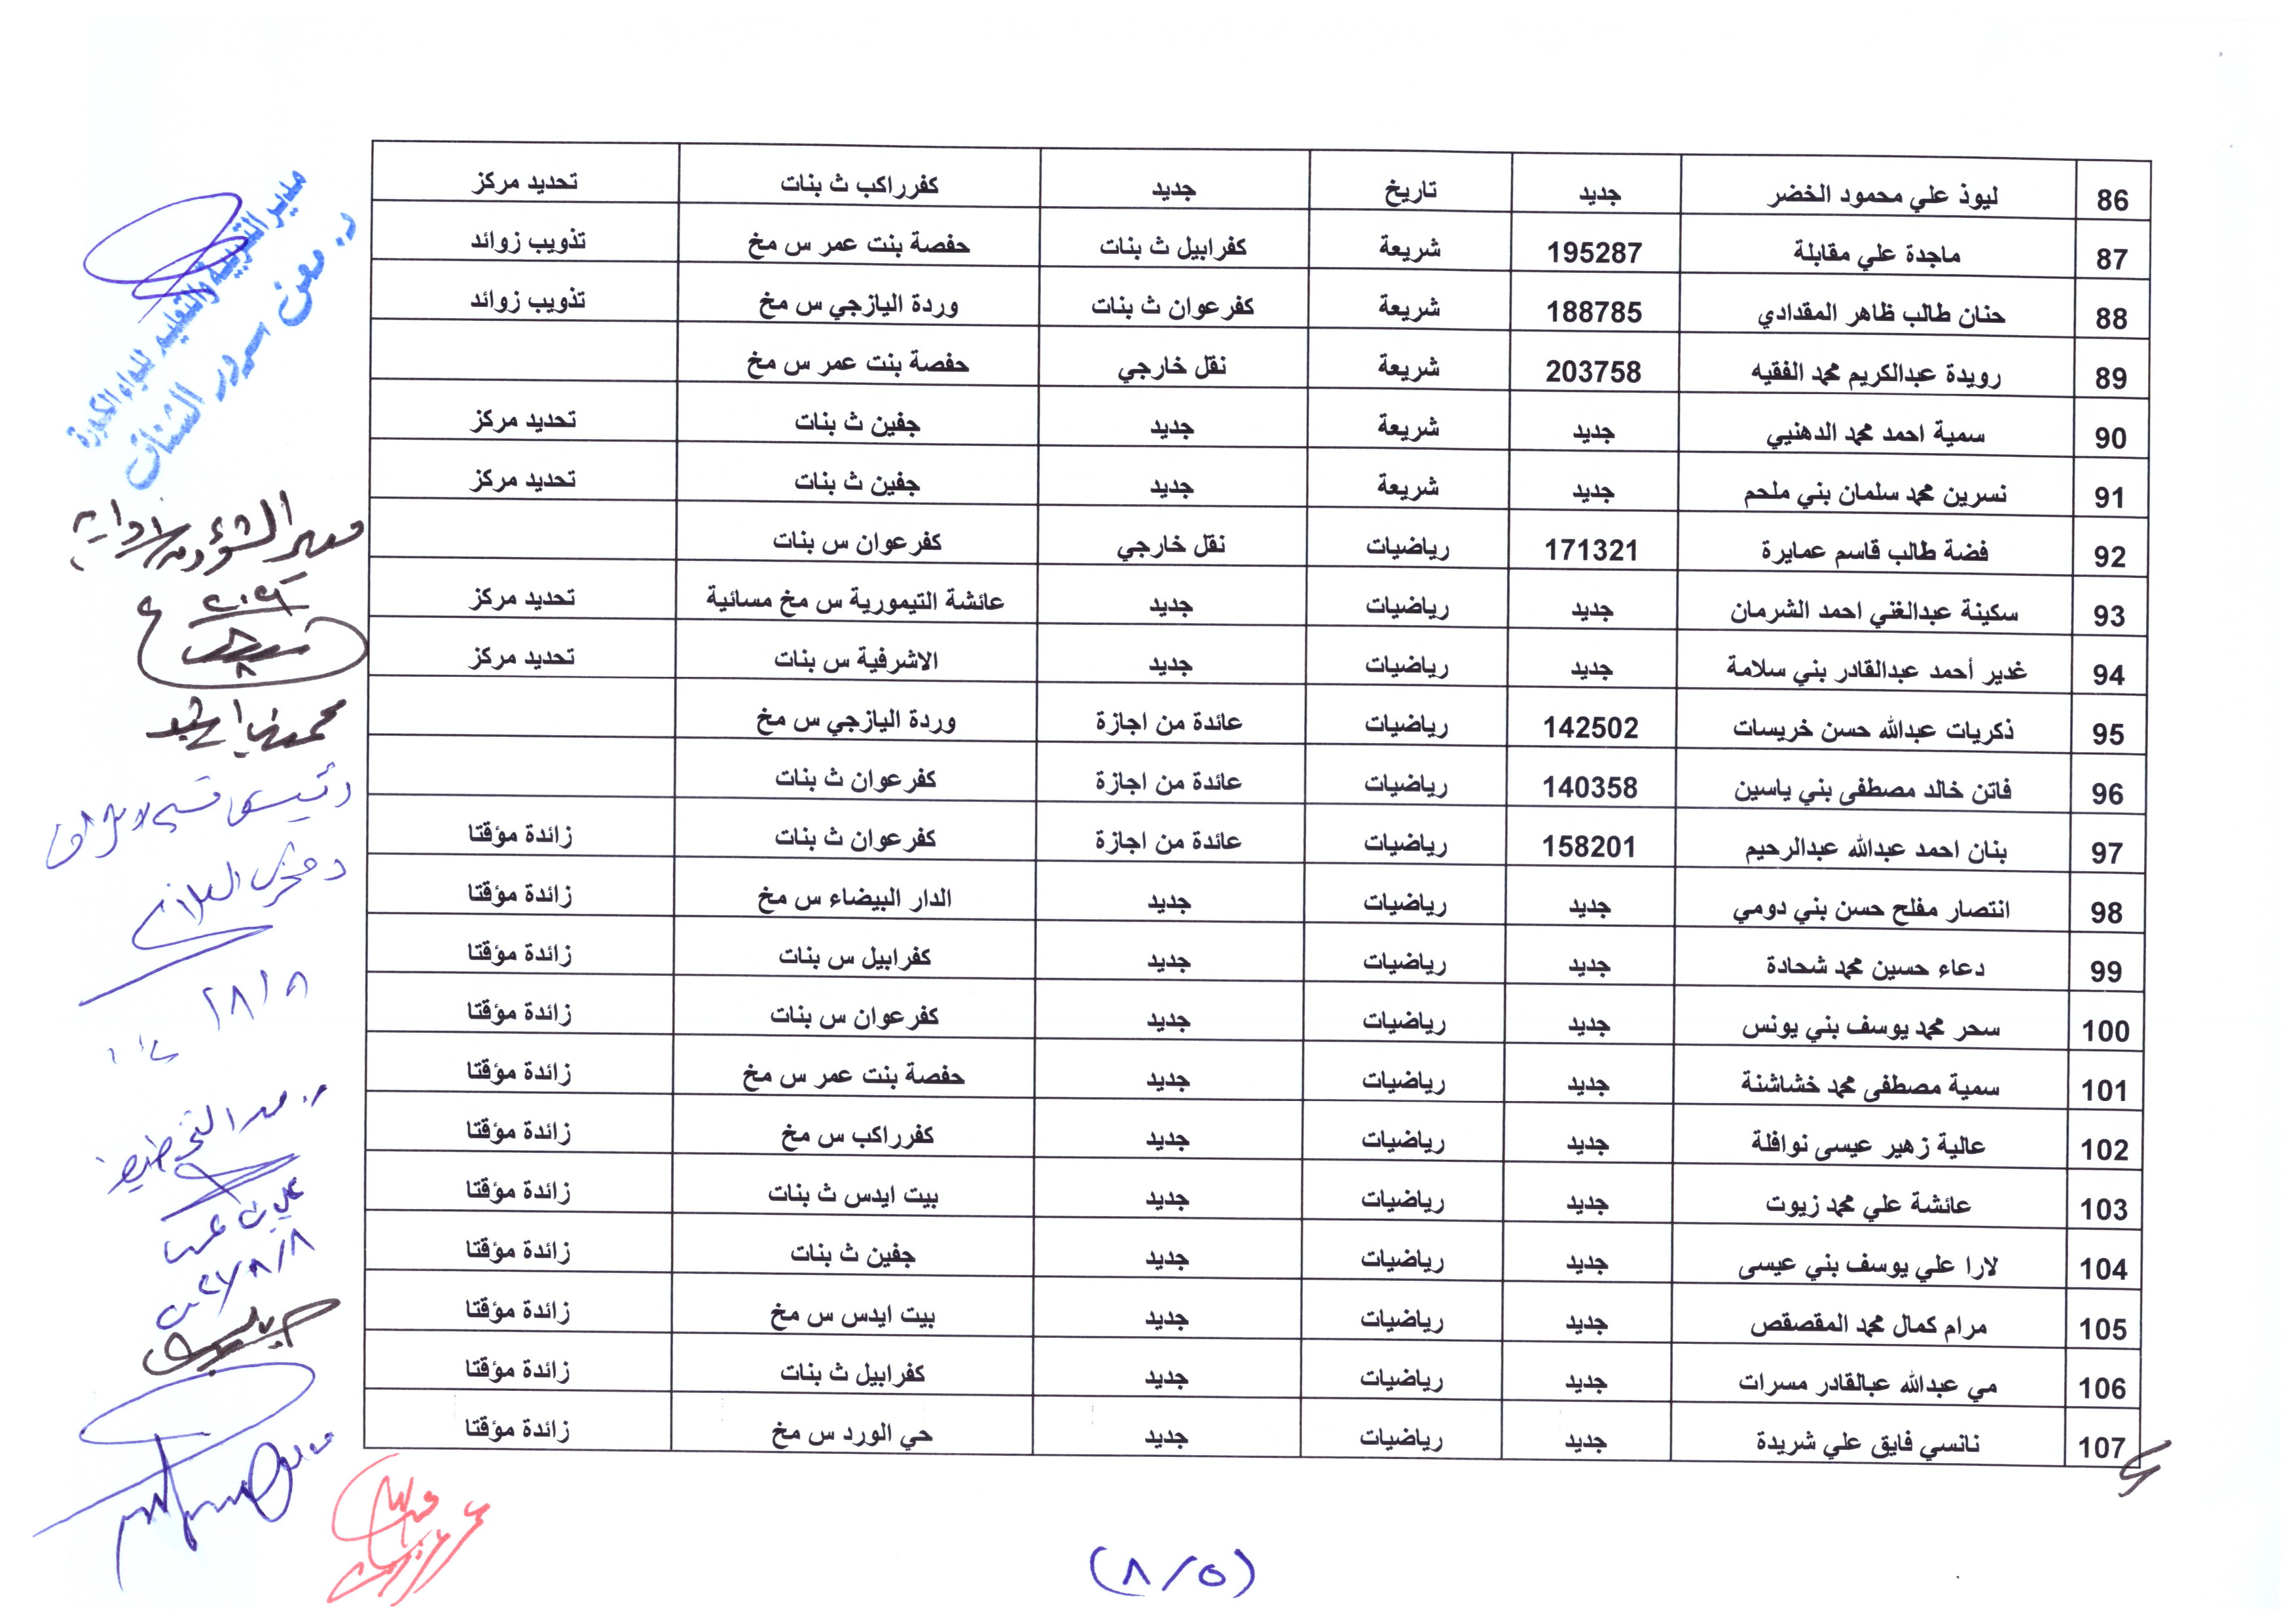 86 ليوذ علي محمود الخضر جديد تاريخ جديد كفرراكب ث بنات تحديد مركز
87 ماجدة علي مقابلة 195287 شريعة كفرابيل ث بنات حفصة بنت عمر س مخ تذويب زوائد
88 حنان طالب ظاهر المقدادي 188785 شريعة كفرعوان ث بنات وردة اليازجي س مخ تذويب زوائد
89 رويدة عبدالكريم محمد الفقيه 203758 شريعة نقل خارجي حفصة بنت عمر س مخ
90 سمية احمد محمد الدهني جديد شريعة جديد جفين ث بنات تحديد مركز
91 نسرين محمد سلمان بني ملحم جديد شريعة جديد جفين ث بنات تحديد مركز
92 فضة طالب قاسم عمايرة 171321 رياضيات نقل خارجي كفرعوان س بنات
93 سكينة عبدالغني احمد الشرمان جديد رياضيات جديد عائشة التيمورية س مخ مسائية تحديد مركز
94 غدير أحمد عبدالقادر بني سلامة جديد رياضيات جديد الاشرفية س بنات تحديد مركز
95 ذكريات عبدالله حسن خريسات 142502 رياضيات عائدة من اجازة وردة اليازجي س مخ
96 فاتن خالد مصطفى بني ياسين 140358 رياضيات عائدة من اجازة كفرعوان ث بنات
97 بنان احمد عبدالله عبدالرحيم 158201 رياضيات عائدة من اجازة كفرعوان ث بنات زائدة مؤقتا
98 انتصار مفلح حسن بني دومي جديد رياضيات جديد الدار البيضاء س مخ زائدة مؤقتا
99 دعاء حسين محمد شحادة جديد رياضيات جديد كفرابيل س بنات زائدة مؤقتا
100 سحر محمد يوسف بني يونس جديد رياضيات جديد كفرعوان س بنات زائدة مؤقتا
101 سمية مصطفى محمد خشاشنة جديد رياضيات جديد حفصة بنت عمر س مخ زائدة مؤقتا
102 عالية زهير عيسى نوافلة جديد رياضيات جديد كفرراكب س مخ زائدة مؤقتا
103 عائشة علي محمد زيوت جديد رياضيات جديد بيت ايدس ث بنات زائدة مؤقتا
104 لارا علي يوسف بني عيسى جديد رياضيات جديد جفين ث بنات زائدة مؤقتا
105 مرام كمال محمد المقصقص جديد رياضيات جديد بيت ايدس س مخ زائدة مؤقتا
106 مي عبدالله عبالقادر مسرات جديد رياضيات جديد كفرابيل ث بنات زائدة مؤقتا
107 نانسي فايق علي شريدة جديد رياضيات جديد حي الورد س مخ زائدة مؤقتا
مدير التربية والتعليم للواء الكورة
(٨/٥)